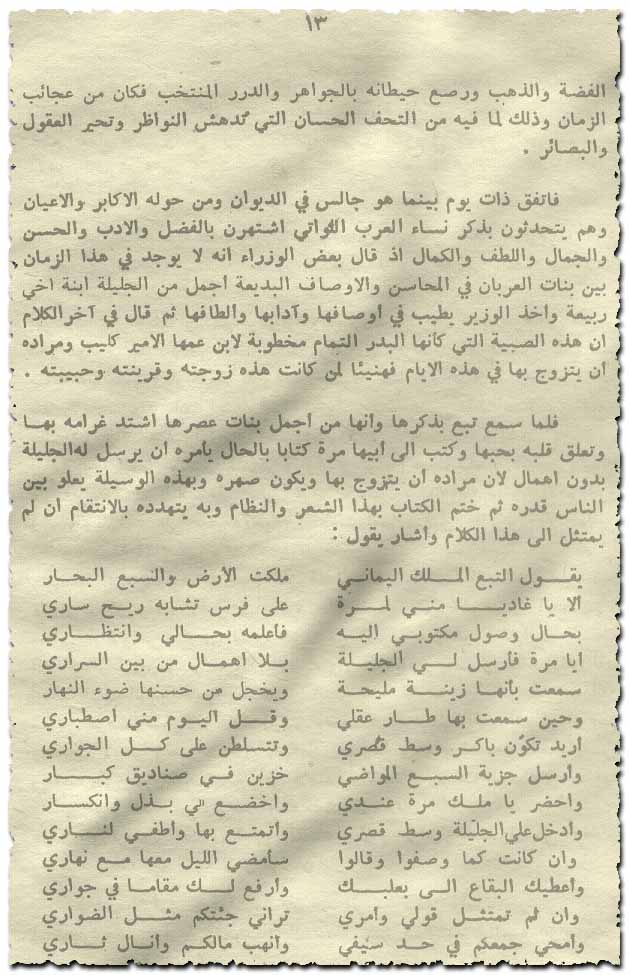 ١٣
الفضة والذهب ورصع حيطانه بالجواهر والدرر المنتخب فكان من عجائب
الزمان وذلك لما فيه من التحف الحسان التي تدهش النواظر وتحير العقول
والبصائر .
فاتفق ذات يوم بينما هو جالس في الديوان ومن حوله الاكابر والاعيان
وهم يتحدثون بذكر نساء العرب اللواتي اشتهرن بالفضل والادب والحسن
والجمال واللطف والكمال اذ قال بعض الوزراء انه لا يوجد في هذا الزمان
بين بنات العربان في المحاسن والاوصاف البديعة أجمل من الجليلة ابنة اخي
ربيعة وأخذ الوزير يطيب في أوصافها وآدابها وألطافها ثم قال في آخر الكلام
ان هذه الصبية التي كأنها البدر التمام مخطوبة لابن عمها الامير كليب ومراده
أن يتزوج بها في هذه الايام فهنيئا لمن كانت هذه زوجته وقرينته وحبيبته .
فلما سمع تبع بذكرها وأنها من أجمل بنات عصرها اشتد غرامه بهـا
وتعلق قلبه بحبها وكتب الى أبيها مرة كتابا بالحال يأمره أن يرسل له الجليلة
بدون اهمال لان مراده أن يتزوج بها ويكون صهره وبهذه الوسيلة يعلو بين
الناس قدره ثم ختم الكتاب بهذا الشعر والنظام وبه يتهدده بالانتقام أن لم
يمتثل الى هذا الكلام وأشار يقول :
يقـول التبع الملـك اليماني ملكت الأرض والسبع البحار
ألا يا غاديـا منـي لمـرة على فرس تشابه ريـح ساري
بحال وصول مكتوبـي اليـه فأعلمه بحـالي وانتظـاري
أيا مرة فأرسل لـي الجليلة بـلا اهمـال من بين السراري
سمعت بأنهـا زينـة مليحة ويخجل من حسنها ضوء النهار
وحين سمعت بها طـار عقلي وقـل اليـوم مني اصطباري
أريد تكون باكـر وسط قصري وتتسلطن على كـل الجواري
وأرسل جزية السبـع المواضي خزين فـي صناديق كبـار
واحضر يا ملـك مرة عنـدي واخضـع لي بـذل وانكسـار
وأدخل علي الجليلة وسط قصري وأتمتـع بها وأطفـي لنـاري
وان كانت كما وصفوا وقالوا سأمضي الليل معها مـع نهاري
وأعطيك البقاع الـى بعلبـك وأرفع لـك مقامـا في جواري
وان لم تمتثـل قولي وأمري تراني جئتكم مثـل الضواري
وأمحي جمعكم في حـد سيفي وأنهب مالكـم وأنـال ثـاري